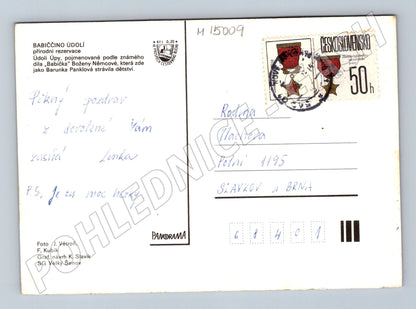 BABIČČINO ÚDOLÍ
přírodní rezervace
Údolí Úpy, pojmenované podle známého
díla „Babička" Boženy Němcové, která zde
jako Barunka Panklová strávila dětství.
M 15009
ČESKOSLOVENSKO
50 h
Pěkný pozdrav
z dovolené Vám
zasílá Lenka
P.S. Je za moc hezky.
Rodina
Polní 1195
SLAVKOV u BRNA
68401
PANORAMA
Foto J. Větroň,
F. Kubík
Graf. návrh K. Slavík
SG Velký Šenov
POHLEDNICE